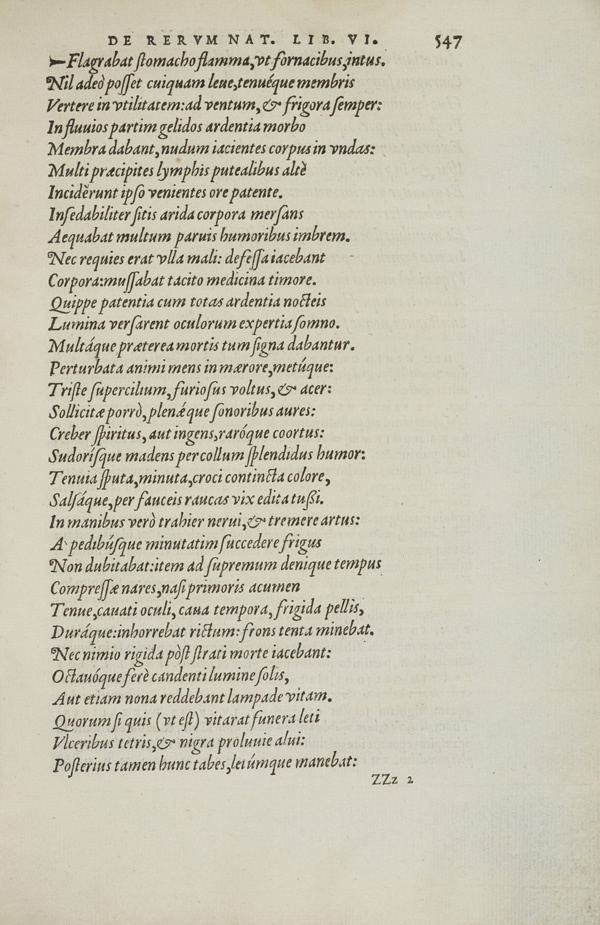 DE RERVM NAT. LIB. VI. 547
Flagrabat stomacho flamma, vt fornacibus, intus.
Nil adeò posset cuiquam leue, tenuéque membris
Vertere in vtilitatem: ad ventum, & frigora semper:
In fluuios partim gelidos ardentia morbo
Membra dabant, nudum iacientes corpus in vndas:
Multi præcipites lymphis putealibus altè
Incidèrunt ipso venientes ore patente.
Insedabiliter sitis arida corpora mersans
Aequabat multum paruis humoribus imbrem.
Nec requies erat vlla mali: defessa iacebant
Corpora: mussabat tacito medicina timore.
Quippe patentia cum totas ardentia nocteis
Lumina versarent oculorum expertia somno.
Multáque præterea mortis tum signa dabantur.
Perturbata animi mens in mærore, metúque:
Triste supercilium, furiosus voltus, & acer:
Sollicitæ porrò, plenæque sonoribus aures:
Creber spiritus, aut ingens, raróque coortus:
Sudorísque madens per collum splendidus humor:
Tenuia sputa, minuta, croci contincta colore,
Salsáque, per fauceis raucas vix edita tussi.
In manibus verò trahier nerui, & tremere artus:
A pedibúsque minutatim succedere frigus
Non dubitabat: item ad supremum denique tempus
Compressæ nares, nasi primoris acumen
Tenue, cauati oculi, caua tempora, frigida pellis,
Duráque: inhorrebat rictum: frons tenta minebat.
Nec nimio rigida pòst strati morte iacebant:
Octauóque ferè candenti lumine solis,
Aut etiam nona reddebant lampade vitam.
Quorum si quis (vt est) vitarat funera leti
Vlceribus tetris, & nigra proluuie alui:
Posterius tamen hunc tabes, letúmque manebat:
ZZz 2